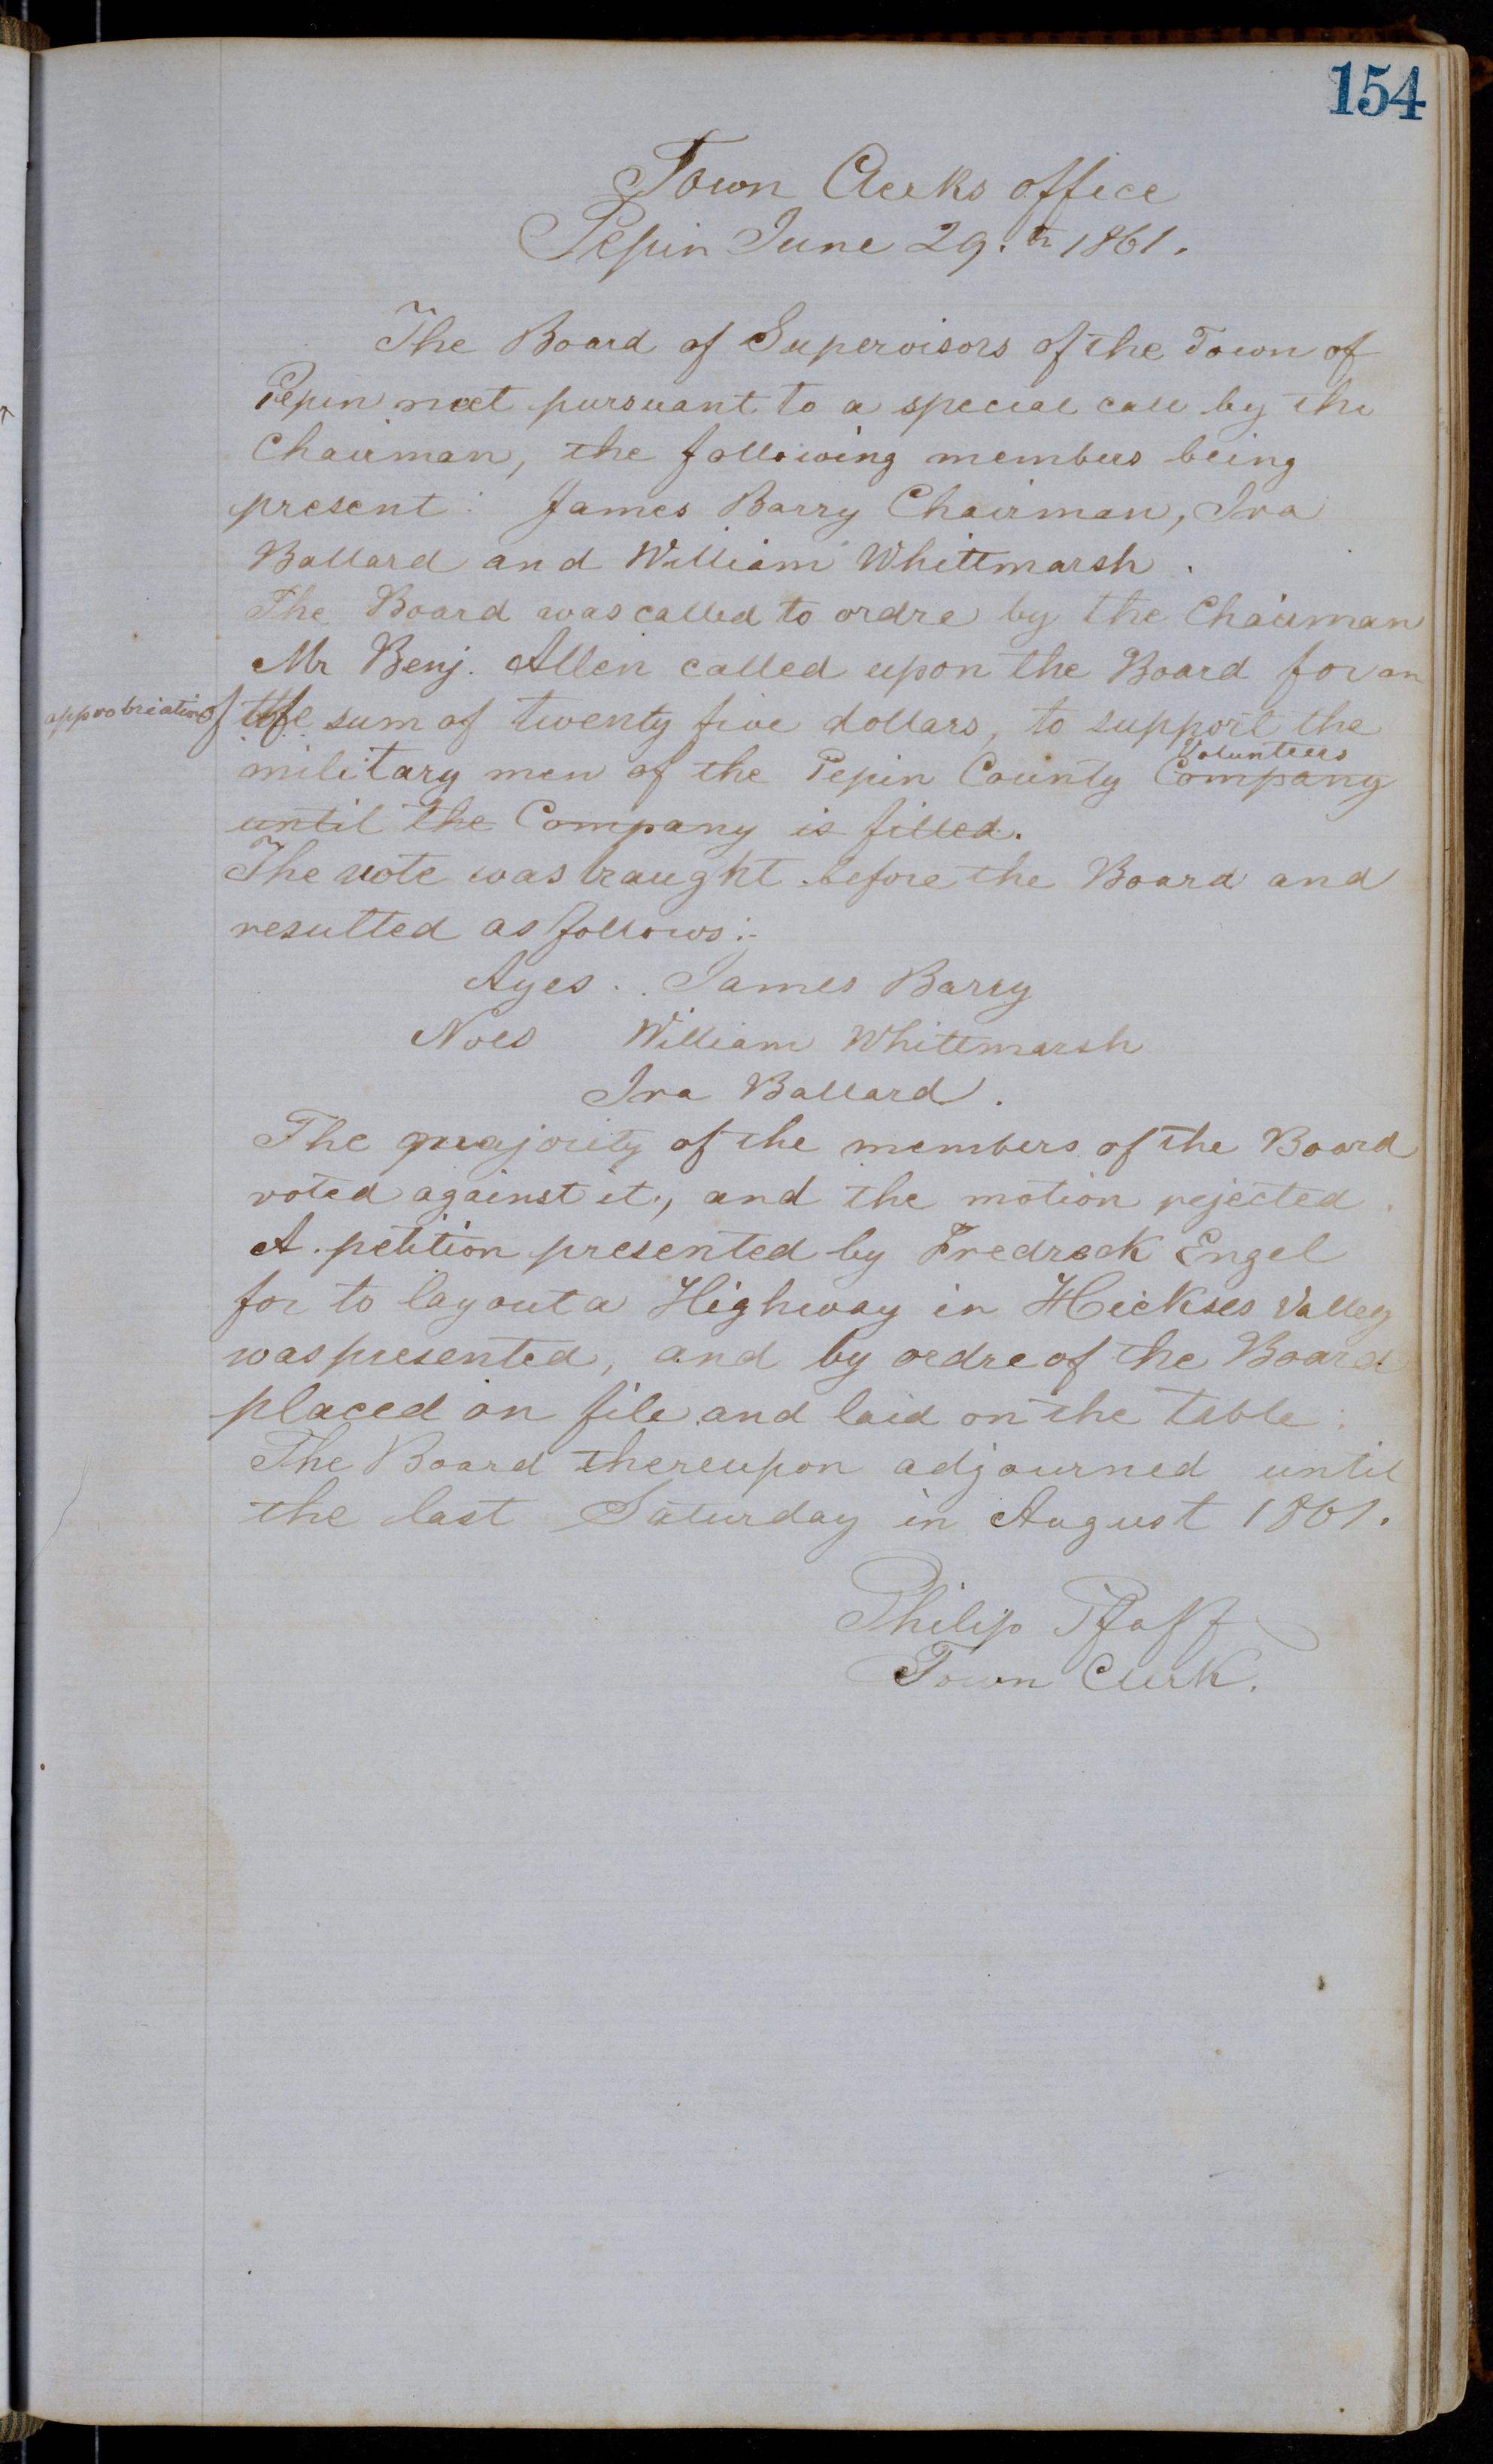 154
Town Clerks office
Pepin June 29.th 1861.
The Board of Supervisors of the Town of
Pepin met pursuant to a special call by the
Chairman, the following members being
present: James Barry Chairman, Ira
Ballard and William Whittmarsh.
The Board was called to ordre by the Chairman
Mr Benj. Allen called upon the Board for an
approbriation of the sum of twenty five dollars, to support the
Volunteers
military men of the Pepin County Company
until the Company is filled.
The vote was braught before the Board and
resulted as follows:-
Ayes.. James Barry
Noes William Whittmarsh
Ira Ballard.
The majority of the members of the Board
voted against it., and the motion rejected.
A. petition presented by Fredrock Engel
for to lay out a Highway in Hickses Valley
was presented, and by ordre of the Board
placed on file and laid on the table:
The Board thereupon adjourned until
the last Saturday in August 1861.
Philip Pfaff
Town Clerk.